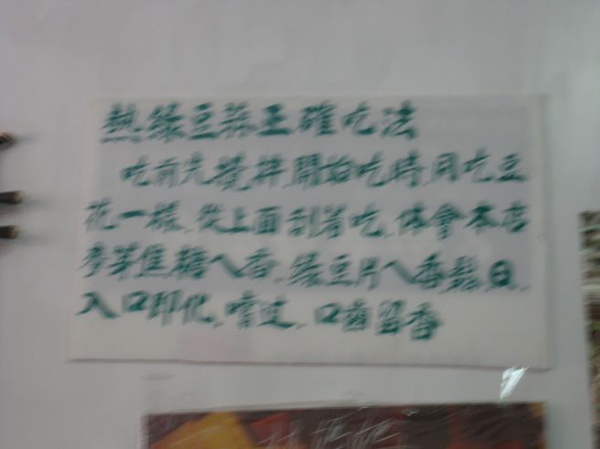 熱綠豆蒜正確吃法
吃前先攪拌開始吃時,用吃豆
花一樣,從上面刮著吃,体會本店
麥芽焦糖ㄟ香,綠豆片ㄟ香鬆,
入口即化,嚐过,口齒留香